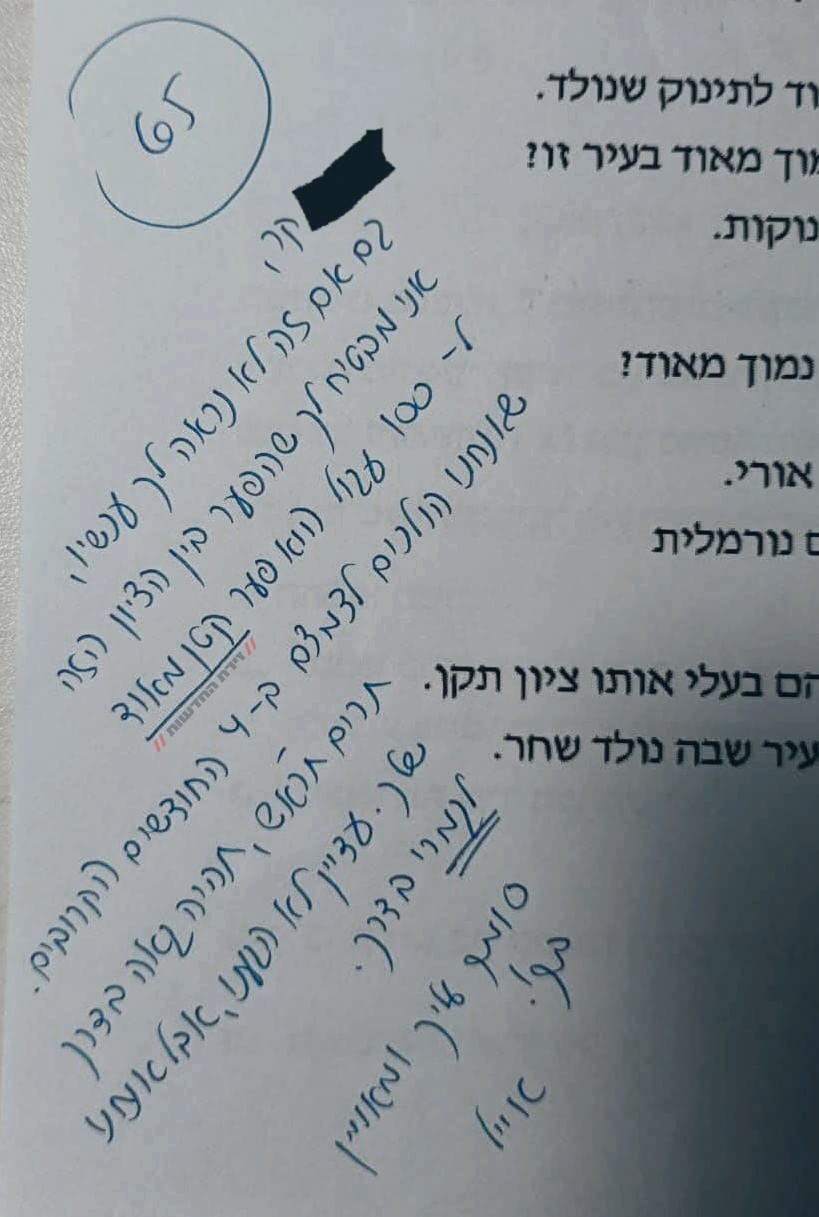 65
יקר,
גם אם זה לא נראה לך עכשיו,
אני מבטיח לך שהפער בין הציון הזה
ל- 100 עגול הוא פער קטן מאוד
שאנחנו הולכים לצמצם ב-4 החודשים הקרובים.
תרים ת'ראש, תהיה גאה בדרך
שלך. עדיין לא הגענו, אבל אנחנו
לגמרי בדרך.
סומך עליך ומאמין
בך!
אייל
//זירת החדשות//
וד לתינוק שנולד.
מוך מאוד בעיר זו?
נוקות.
נמוך מאוד?
אורי.
ם נורמלית
הם בעלי אותו ציון תקן.
עיר שבה נולד שחר.